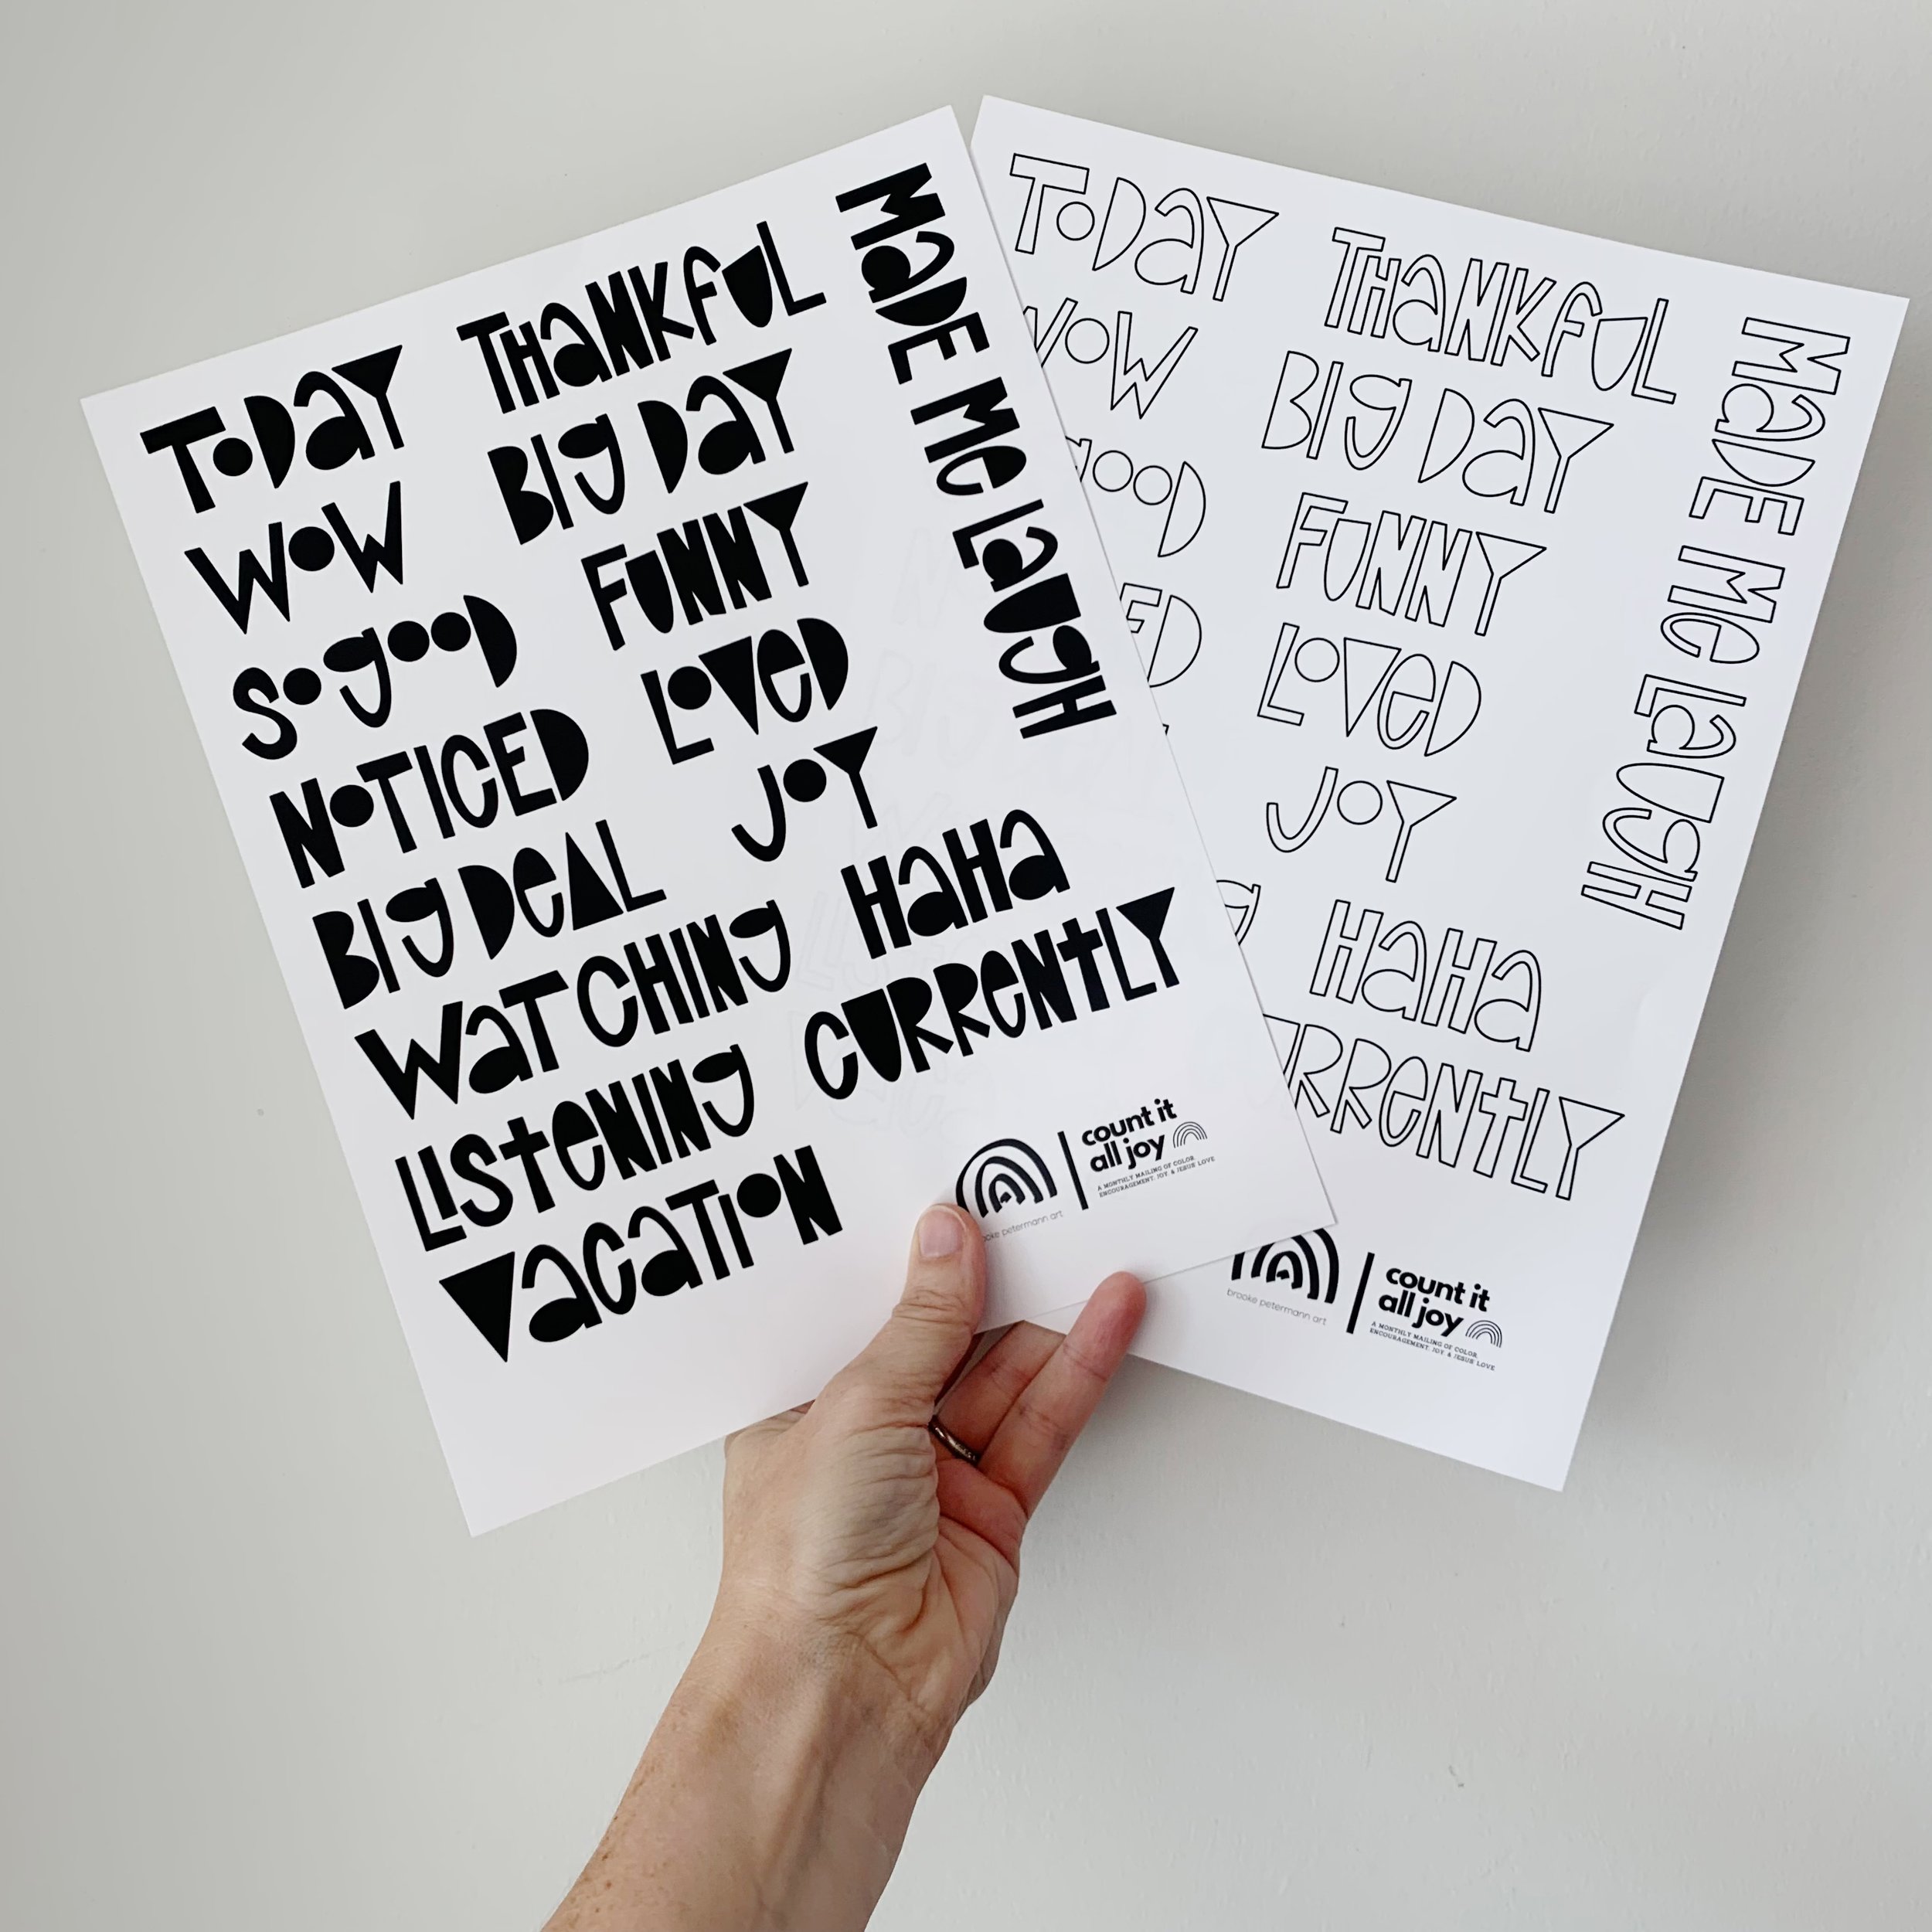 TODAY
THANKFUL
MADE ME LAUGH
WOW
BIG DAY
SO GOOD
FUNNY
NOTICED
LOVED
BIG DEAL
JOY
WATCHING
HAHA
LISTENING
CURRENTLY
VACATION
count it
all joy
A MONTHLY MAILING OF COLOR,
ENCOURAGEMENT, JOY, & JESUS LOVE
ooke petermann art
TODAY
THANKFUL
MADE ME LAUGH
WOW
BIG DAY
GOOD
FUNNY
ED
LOVED
JOY
G
HAHA
URRENTLY
brooke petermann art
count it
all joy
A MONTHLY MAILING OF COLOR,
ENCOURAGEMENT, JOY, & JESUS LOVE